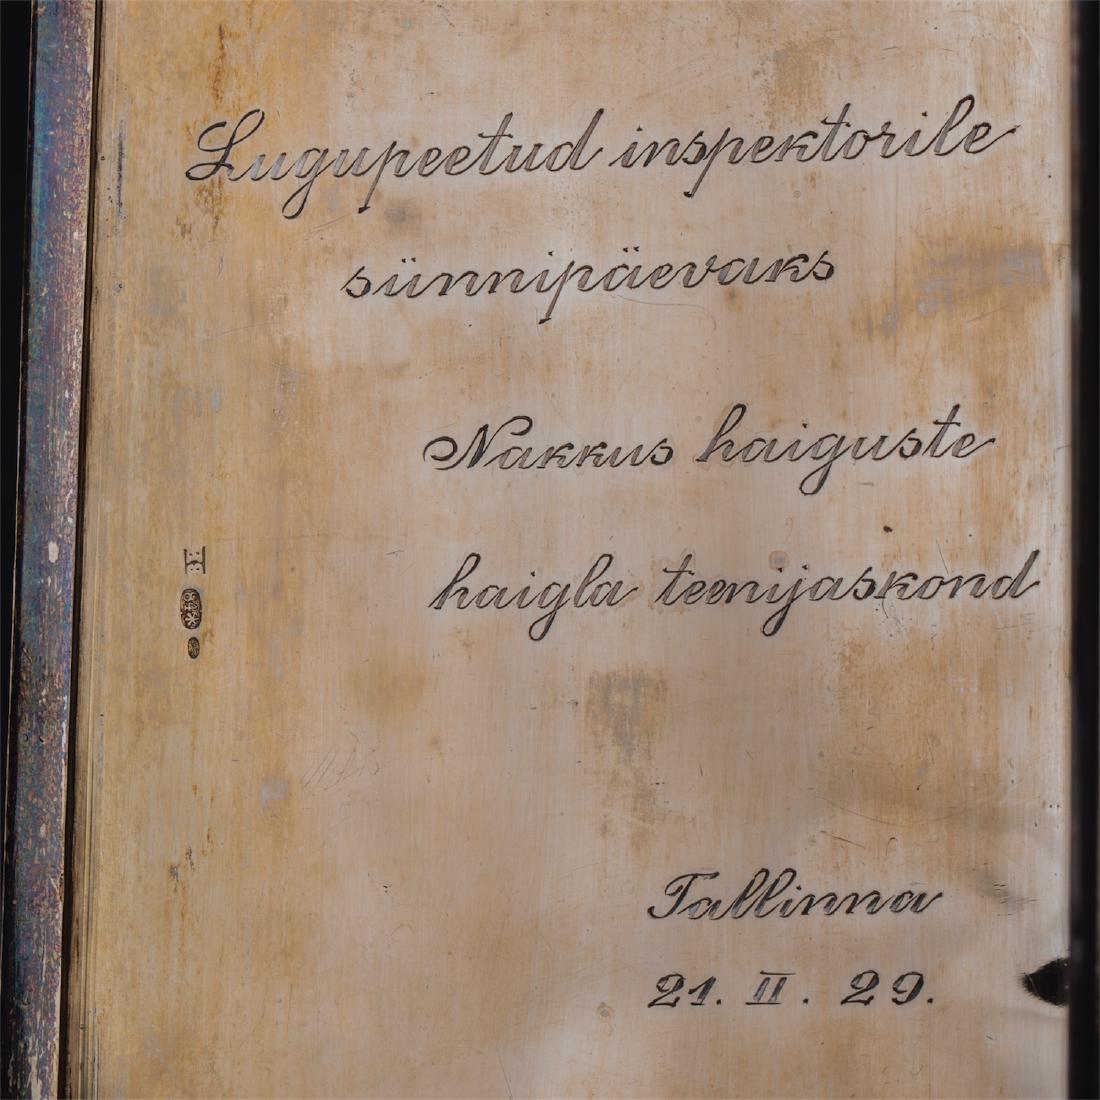 Lugupeetud inspektorile
sünnipäevaks
Nakkus haiguste
haigla teenijaskond
Tallinna
21. II. 29.